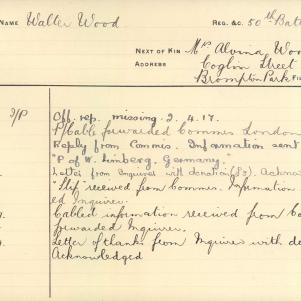 NAME Walter Wood REG. &C. 50th Batt
NEXT OF KIN Mrs Alvina Woo
ADDRESS Coglin Street
Brompton Park
I/P Off. rep. missing 2.4.17.
P/Cable forwarded Commrs London
Reply from Commrs. Information sent
"P of W. Limberg. Germany."
Letter from Enquirer with donation (8/-) Acknow
"Slip" received from Commrs. Information
ed Inquirer.
Cabled information received from Co
forwarded Inquirer.
Letter of thanks from Inquirer with do
Acknowledged